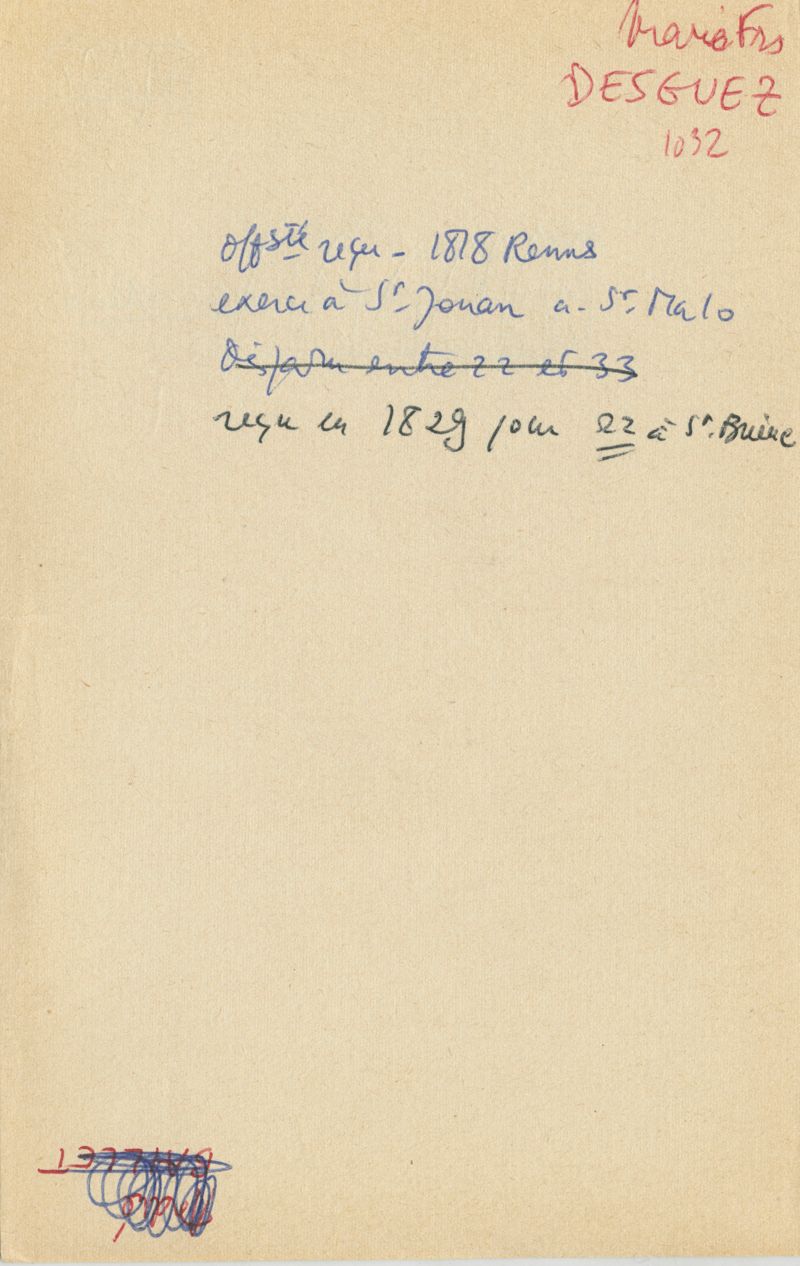 Marie Frs
DESGUEZ
1032
offsté reçu - 1818 Rennes
exerce à St. Jouan a. St. Malo
Disparu entre 22 et 33
reçu en 1829 pour 22 à St. Brieuc